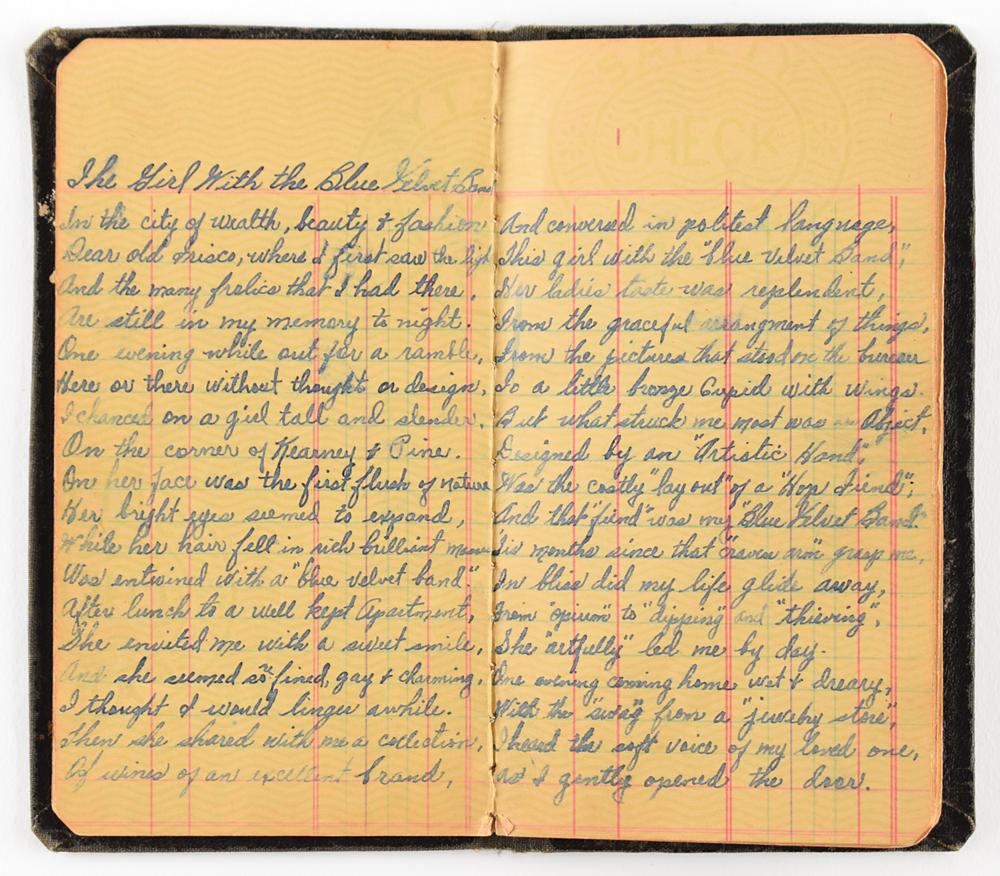 The Girl With the Blue Velvet Band
In the city of wealth, beauty & fashion
Dear old Frisco, where I first saw the light
And the many frolics that I had there,
Are still in my memory to night.
One evening while out for a ramble,
Here or there without thought or design,
I chanced on a girl tall and slender,
On the corner of Kearney & Pine.
On her face was the first flush of nature
Her bright eyes seemed to expand,
While her hair fell in rich brilliant masses
Was entwined with a "blue velvet band."
After lunch to a well kept Apartment,
She envited me with a sweet smile,
And she seemed so refined, gay & charming,
I thought I would linger awhile.
Then she shared with me a collection,
Of wines of an excellent brand,
And conversed in politest language,
This girl with the "blue Velvet Band",
Her ladies taste was replendent,
From the graceful arrangment of things,
From the pictures that stood on the bureau
To a little bronze Cupid with wings.
But what struck me most was an Object,
Designed by an "Artistic Hand",
Was the costly "lay out" of a "Hop Fiend",
And that "fiend" was my "Blue Velvet Band."
Tis months since that "craven arm" grasp me,
In bliss did my life glide away,
From "opium" to "dipping" and "thieving",
She "artfully" led me by day.
One evening coming home wet & dreary,
With the "swag" from a "jewelry store",
I heard the soft voice of my loved one,
As I gently opened the door.
SAFETY
CHECK